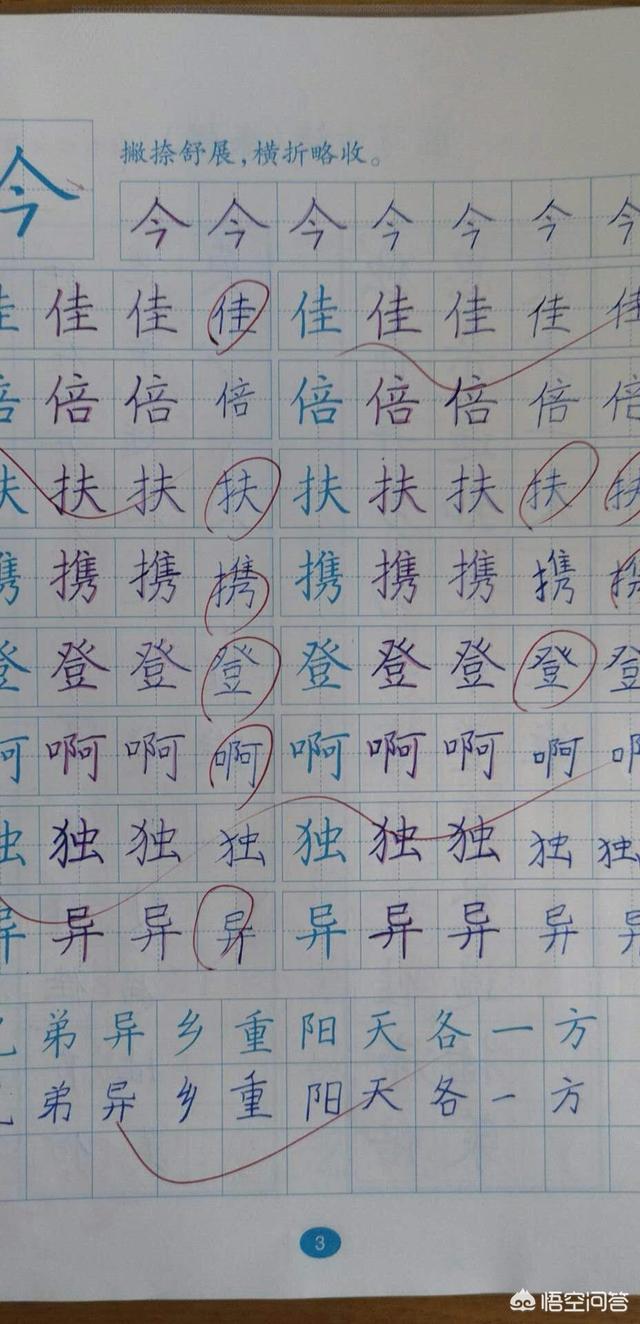 撇捺舒展,横折略收。
今 今 今 今 今 今 今 今
佳 佳 佳 佳 佳 佳 佳 佳 佳
倍 倍 倍 倍 倍 倍 倍 倍 倍
扶 扶 扶 扶 扶 扶 扶 扶 扶
携 携 携 携 携 携 携 携 携
登 登 登 登 登 登 登 登 登
啊 啊 啊 啊 啊 啊 啊 啊 啊
独 独 独 独 独 独 独 独 独
异 异 异 异 异 异 异 异 异
弟 异 乡 重 阳 天 各 一 方
弟 异 乡 重 阳 天 各 一 方
3
悟空问答